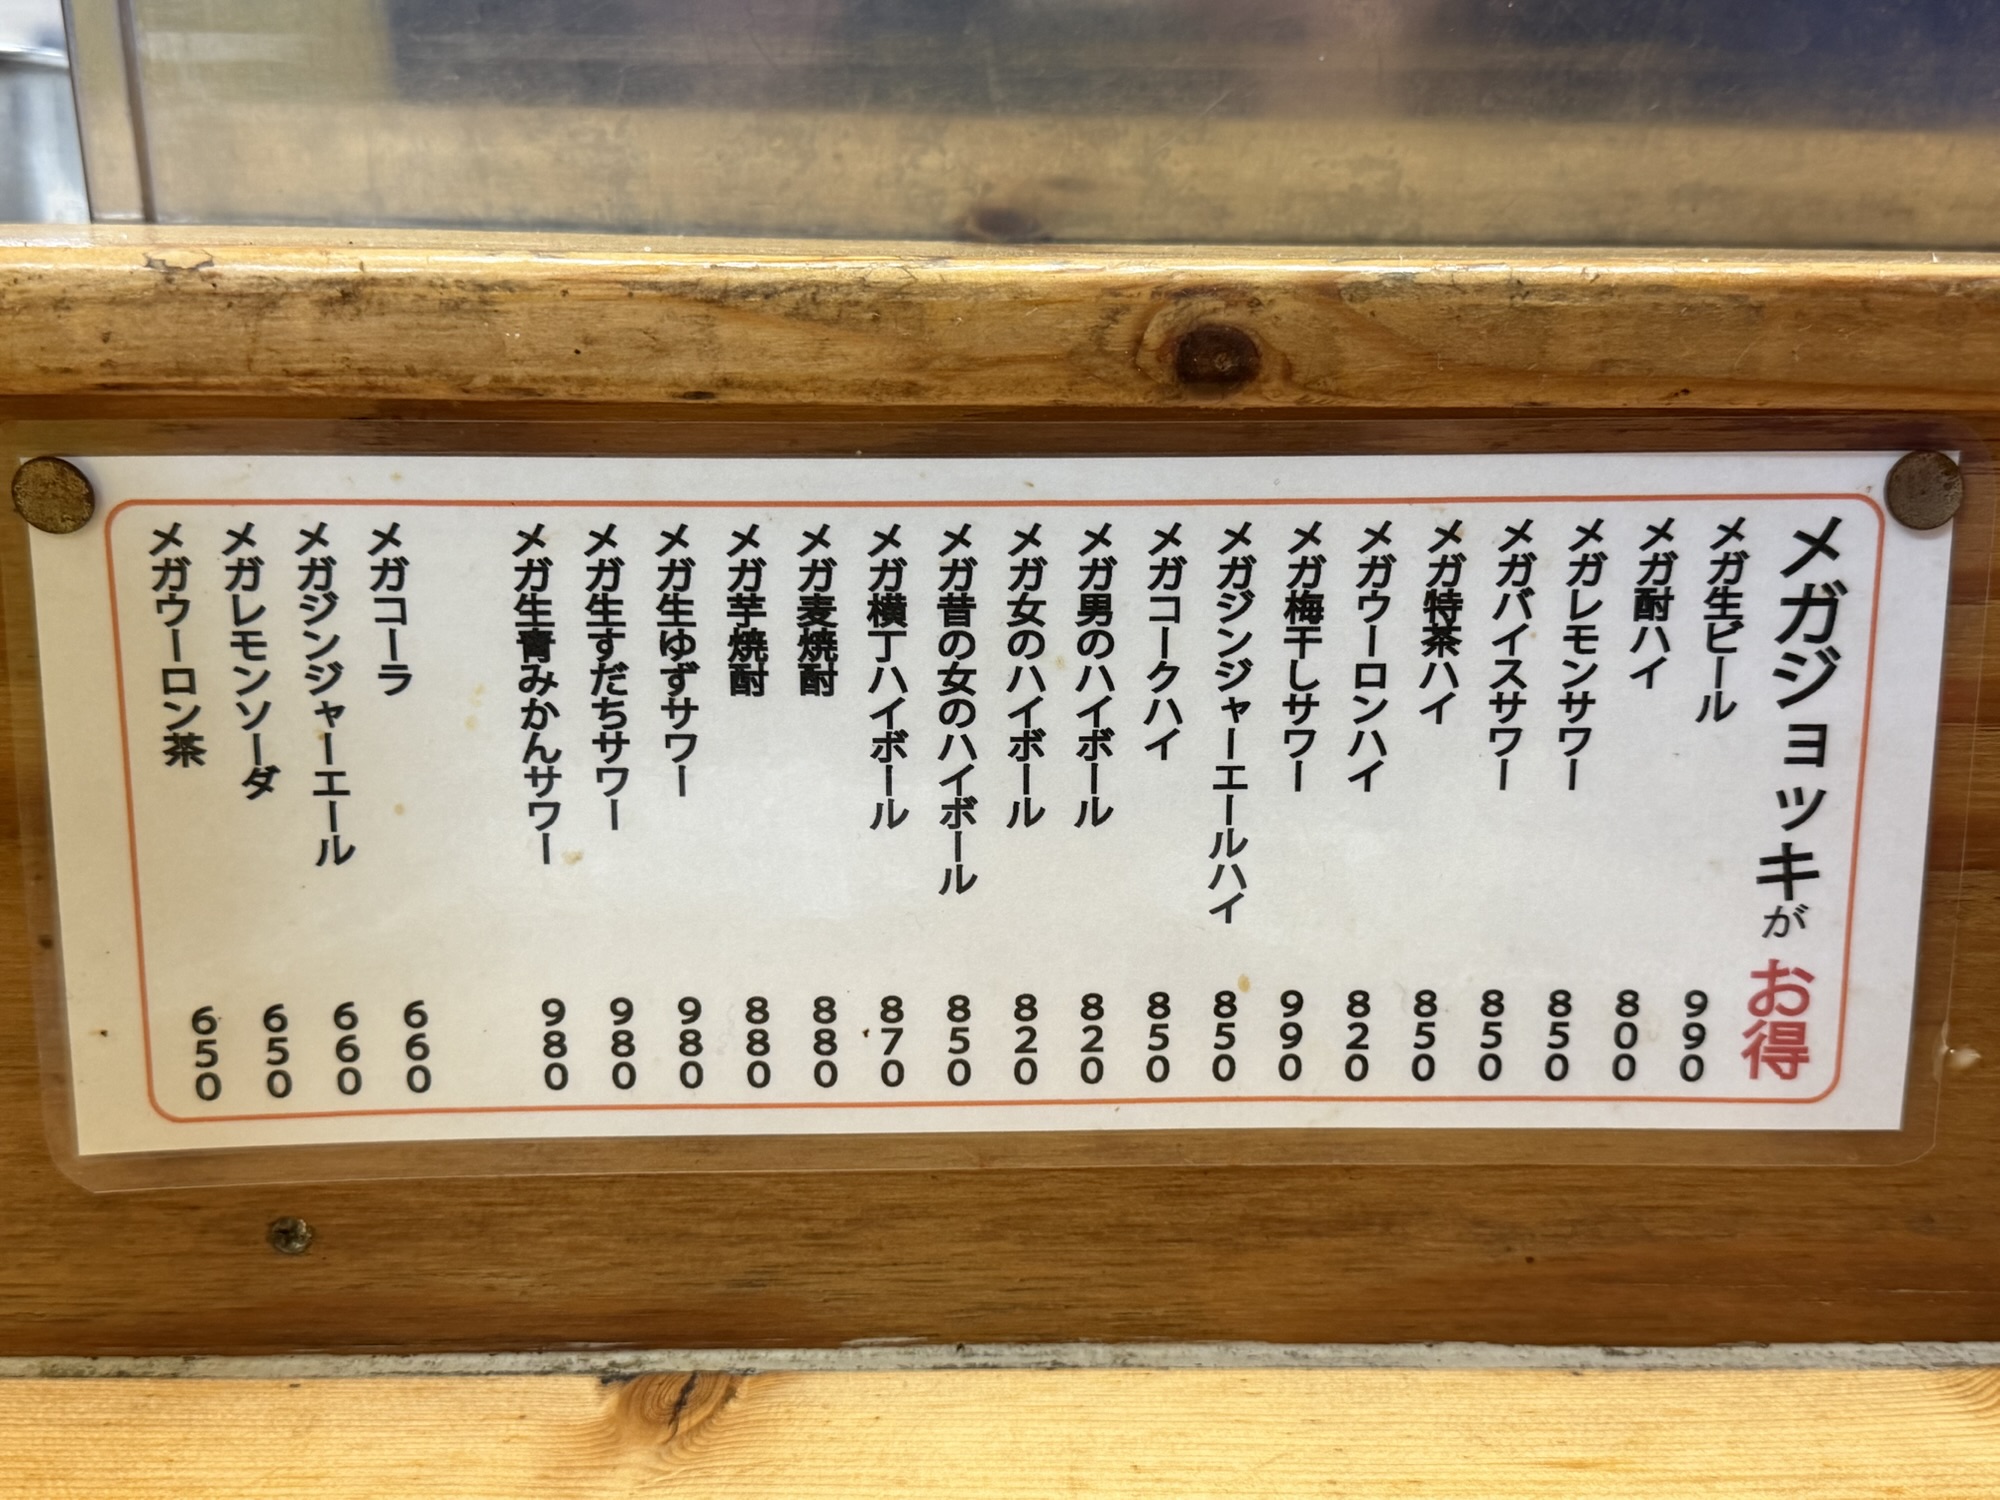 メガジョッキがお得
メガ生ビール 990
メガ酎ハイ 800
メガレモンサワー 850
メガバイスサワー 850
メガ特茶ハイ 850
メガウーロンハイ 820
メガ梅干しサワー 990
メガジンジャーエールハイ 850
メガコークハイ 850
メガ男のハイボール 820
メガ女のハイボール 820
メガ昔の女のハイボール 850
メガ横丁ハイボール 870
メガ麦焼酎 880
メガ芋焼酎 880
メガ生ゆずサワー 980
メガ生すだちサワー 980
メガ生青みかんサワー 980
メガコーラ 660
メガジンジャーエール 660
メガレモンソーダ 650
メガウーロン茶 650